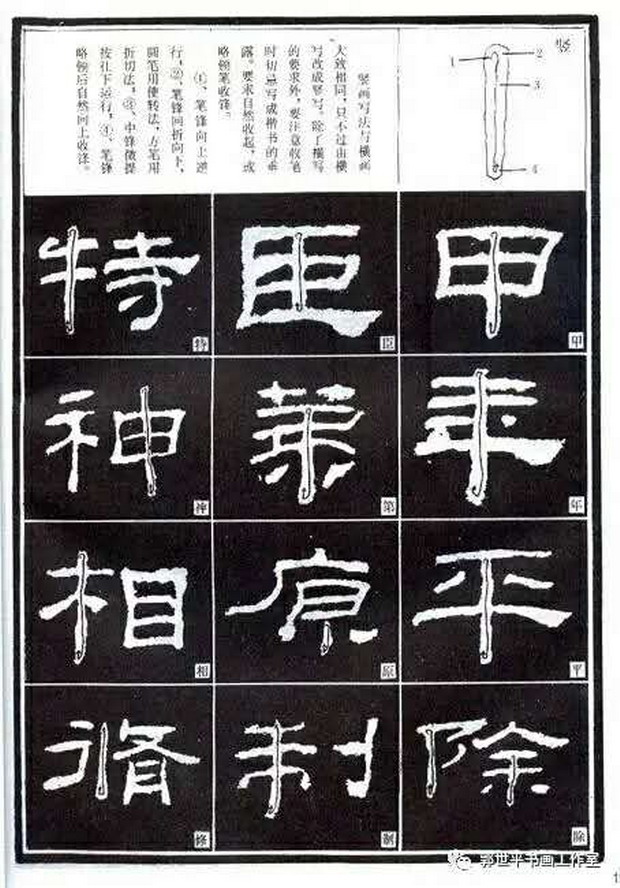 竖
1
2
3
4
竖画写法与横画
大致相同,只不过由横
写改成竖写。除了横写
的要求外,要注意收笔
时切忌写成楷书的垂
露。要求自然收起,或
略顿笔收锋。
①、笔锋向上逆
行,②、笔锋回折向下,
圆笔用使转法,方笔用
折切法,③、中锋微提
按往下运行,④、笔锋
略顿后自然回上收锋。
甲
甲
年
年
平
平
除
除
臣
臣
第
第
原
原
制
制
特
特
神
神
相
相
脩
修
郭世平书画工作室